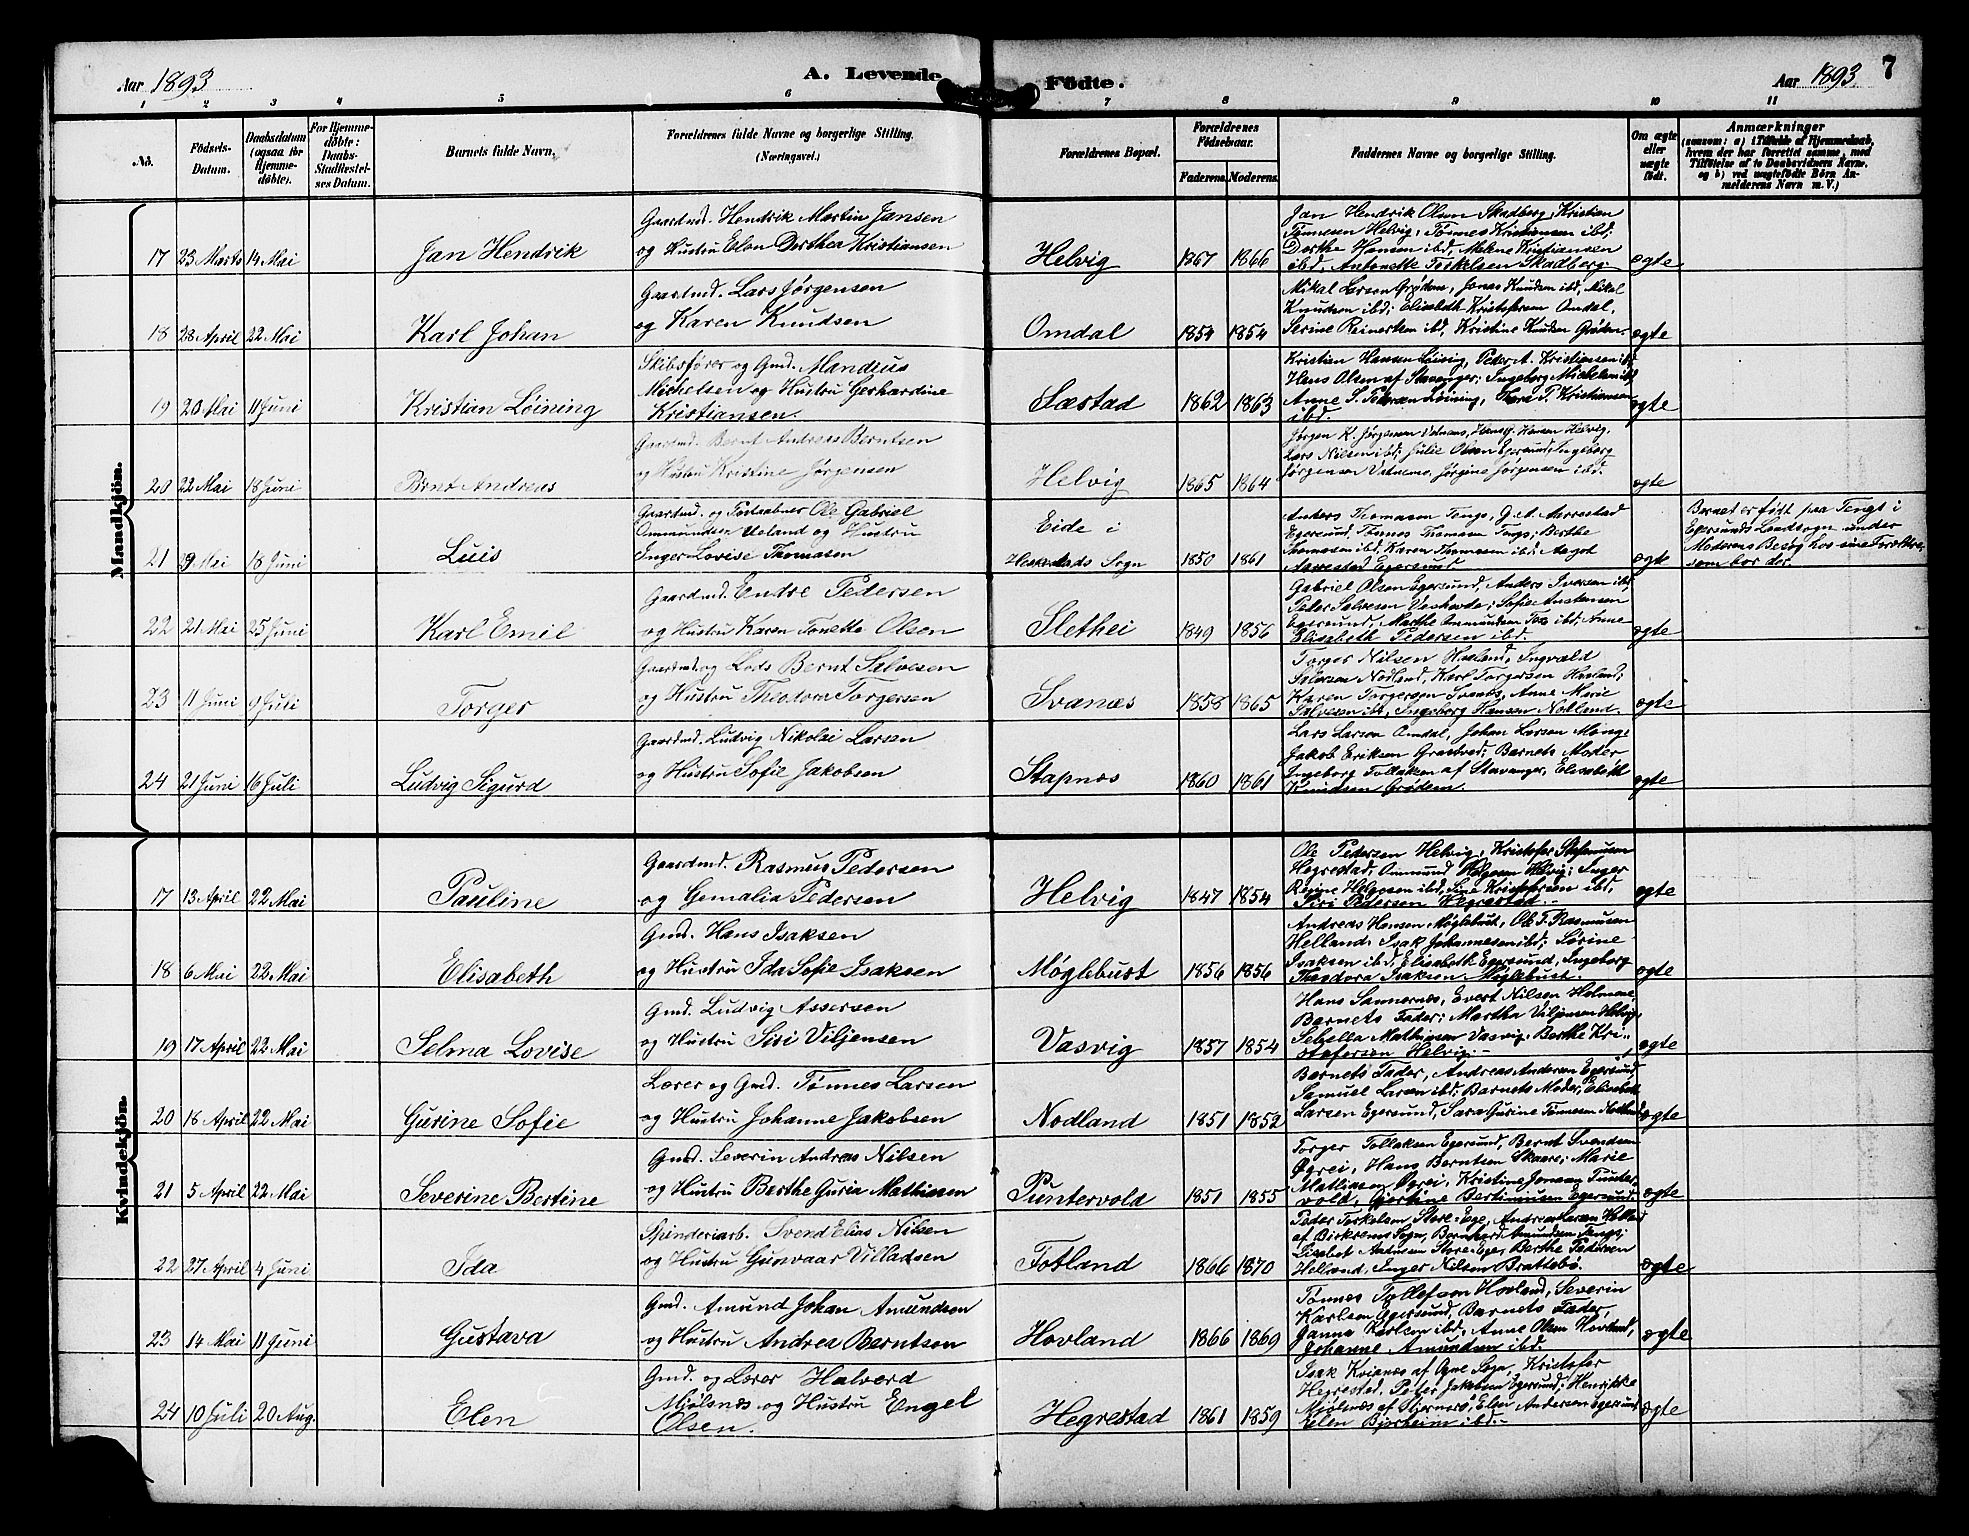 Aar 1893
A. Levende Födte.
Aar 1893
7
1 2 3 4 5 6 7 8 9 10 11
No.
Födsels-Datum.
Daabsdatum (ogsaa for Hjemmedöbte).
For Hjemmedöbte: Daabs-Stadfæstelses Datum.
Barnets fulde Navn.
Forældrenes fulde Navne og borgerlige Stilling.
(Næringsvei.)
Forældrenes Bopæl.
Forældrenes Födselsaar.
Faderens. Moderens.
Faddernes Navne og borgerlige Stilling.
Om ægte eller uægte födt.
Anmærkninger
Mandkjön.
17 23 Marts 14 Mai Jan Hendrik
Gaardmd. Hendrik Martin Jansen
og Hustru Elen Dorthea Kristiansen
Helvig 1867 1866
Jan Hendrik Olsen Skadberg, Kristian
Tønnesen Helvig; Tønnes Kristiansen ibd.
Dorthe Hansen ibd, Malene Kristiansen
ibd. Antonette Torkelsen Skadberg.
ægte
18 28 April 22 Mai Karl Johan
Gaardmd. Lars Jørgensen
og Karen Knudsen
Omdal 1854 1854
Mikal Larsen Grødem, Jonas Knudsen ibd, Mikal
Knudsen ibd; Elisabeth Kristofersen Omdal,
Serine Reinertsen ibd, Kristine Knudsen Grødem.
ægte
19 20 Mai 11 Juni Kristian Løining
Skibsfører og Gmd. Mandius
Michelsen og Hustru Gerhardine
Kristiansen.
Sæstad 1862 1863
Kristian Hansen Løining, Peder A. Kristiansen ibd,
Hans Olsen af Stavanger; Ingeborg Michelsen ibd,
Anne S. Pedersen Løining, Thora P. Kristiansen
ibd.
ægte
20 22 Mai 18 Juni Bernt Andreas
Gaardmd. Bernt Andreas Berntsen
og Hustru Kristine Jørgensen
Helvig 1865 1864
Jørgen K. Jørgensen Vatnemo, Hans J. Hansen Helvig,
Lars Nilsen ibd; Julie Olsen Egersund, Ingeborg
Jørgensen Vatnemo, Jørgine Jørgensen ibd.
ægte
21 29 Mai 18 Juni Luis
Gaardmd. og Postaabner Ole Gabriel
Ommundsen Ueland og Hustru
Inger Lovise Thomasen
Eide i
Heskestads Sogn 1850 1861
Anders Thomasen Tengs, G. A. Aarrestad
Egersund, Tønnes Thomasen Tengs; Berthe
Thomasen ibd, Karen Thomasen ibd; Aasgot
Aarrestad Egersund
ægte
Barnet er født paa Tengs i
Egersunds Landsogn under
Moderens Besøg hos sine Forældre,
som bor der.
22 21 Mai 25 Juni Karl Emil
Gaardmd. Endre Pedersen
og Hustru Karen Tonette Olsen
Slethei 1849 1856
Gabriel Olsen Egersund, Anders Iversen ibd,
Peder Salvesen; Sofie Andersen
Egersund, Marthe Ommundsen ibd, Anne
Elisabeth Pedersen ibd.
ægte
23 11 Juni 9 Juli Torger
Gaardmd og Lods Bernt Salvesen
og Hustru Theodora Torgersen
Svanæs 1858 1865
Torger Nilsen Hovland, Ingvald
Salvesen Nodland, Karl Torgersen Hovland;
Karen Torgersen Svanæs, Anne Marie
Salvesen ibd, Ingeborg Hansen Nodland.
ægte
24 21 Juni 16 Juli Ludvig Sigurd
Gaardmd. Ludvig Nikolai Larsen
og Hustru Sofie Jakobsen
Stapnæs 1860 1861
Lars Larsen Omdal, Johan Larsen Mong,
Jakob Eriksen; Barnets Moder
Ingeborg Tollaksen af Stavanger, Elisabeth
Knudsen Grødem.
ægte
Kvindekjön.
17 13 April 22 Mai Pauline
Gaardmd. Rasmus Pedersen
og Gemalia Pedersen
Helvig 1847 1854
Ole Pedersen Helvig, Kristofer Stefansen
Hegrestad, Ommund Helgesen Helvig; Inger
Regine Helgesen ibd, Sine Kristofersen ibd,
Siri Pedersen Hegrestad.
ægte
18 6 Mai 22 Mai Elisabeth
Gmd. Hans Isaksen
og Hustru Ida Sofie Isaksen
Møglebust 1856 1856
Andreas Hansen Møglebust, Ole T. Rasmusen
Helland, Isak Johannesen ibd; Sørine
Isaksen ibd, Elisabeth Egersund, Ingeborg
Theodora Isaksen Møglebust.
ægte
19 17 April 22 Mai Selma Lovise
Gmd. Ludvig Assersen
og Hustru Siri Viljensen
Vasvig 1857 1854
Hans Sannernæs, Evert Nilsen
Barnets Fader; Martha Viljensen Helvig,
Sebella Mathiasen Vasvig, Berthe Kri-
stofersen Helvig.
ægte
20 18 April 22 Mai Gurine Sofie
Lærer og Gmd. Tønnes Larsen
og Hustru Johanne Jakobsen
Nodland 1851 1852
Barnets Fader, Andreas Andersen Egersund,
Samuel Larsen ibd; Barnets Moder, Elisabeth
Larsen Egersund, Sara Gurine Tønnesen Nodland
ægte
21 5 April 22 Mai Severine Bertine
Gmd. Severin Andreas Nilsen
og Hustru Berthe Guria Mathiasen
Puntervold 1851 1855
Torger Tollaksen Egersund, Bernt Svendsen
Øgrei, Hans Berntsen Skaare; Marie
Mathiasen Øgrei, Kristine Jonasen Punter-
vold, Gjertine Bertinusen Egersund.
ægte
22 27 April 4 Juni Ida
Spinderiarb. Svend Elias Nilsen
og Hustru Gunvaar Villadsen
Fotland 1866 1870
Peder Torkelsen Store-Ege, Andreas Larsen Helland
af Birkrems Sogn, Bernhard Amundsen Tengs;
Lisabet Store-Ege, Berthe Pedersen
Helland, Inger Nilsen Brattebø.
ægte
23 14 Mai 11 Juni Gustava
Gmd. Amund Johan Amundsen
og Hustru Andrea Berntsen
Hovland 1866 1869
Tønnes Tollefsen Hovland, Severin
Karlsen Egersund, Barnets Fader;
Janna Karlsen ibd, Anne Olsen Hovland,
Johanne Amundsen ibd.
ægte
24 10 Juli 20 Aug. Elen
Gmd. og Lærer Halvord
Mjølsnæs og Hustru Engel
Olsen.
Hegrestad 1861 1859
Isak af Ogne Sogn, Kristofer
Hegrestad, Peter Jakobsen Egersund; Henrikke
Mjølsnæs af, Elen Andersen Egersund
Elen ibd.
ægte